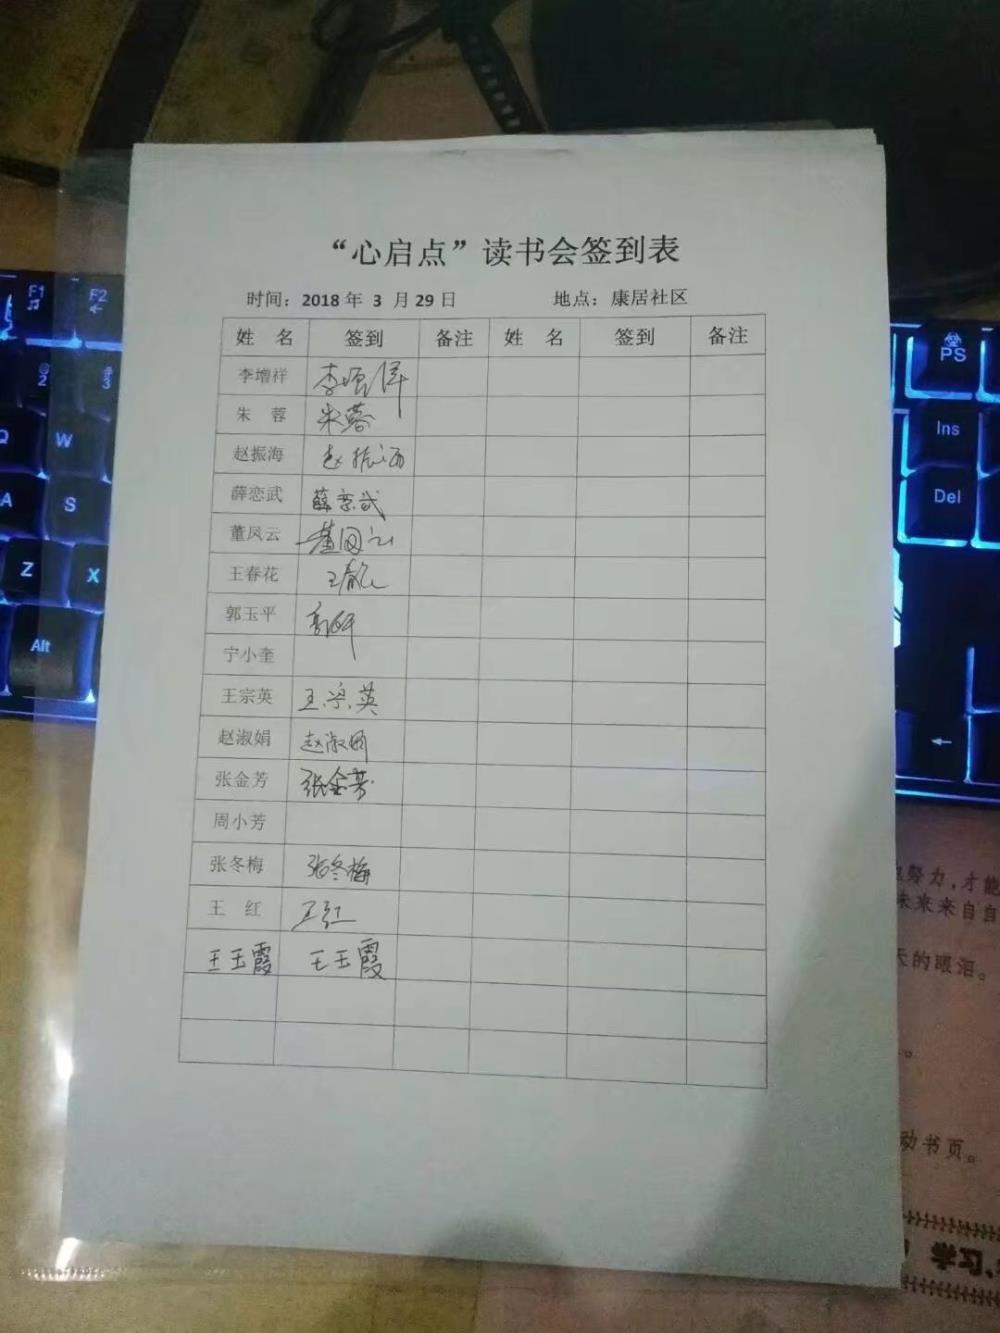 “心启点”读书会签到表
时间：2018 年 3 月 29 日 地点：康居社区
姓 名 签到 备注 姓 名 签到 备注
李增祥 李增祥
朱 蓉 朱蓉
赵振海 赵振海
薛恋武 薛恋武
董凤云 董凤云
王春花
郭玉平 郭玉平
宁小奎
王宗英 王宗英
赵淑娟 赵淑娟
张金芳 张金芳
周小芳
张冬梅 张冬梅
王 红 王红
王玉霞 王玉霞
F1
F2
2
3
Q
W
A
S
Z
X
Alt
PS
Ins
Del
努力，才能
未来来自自
天的眼泪。
动书页。
学习、